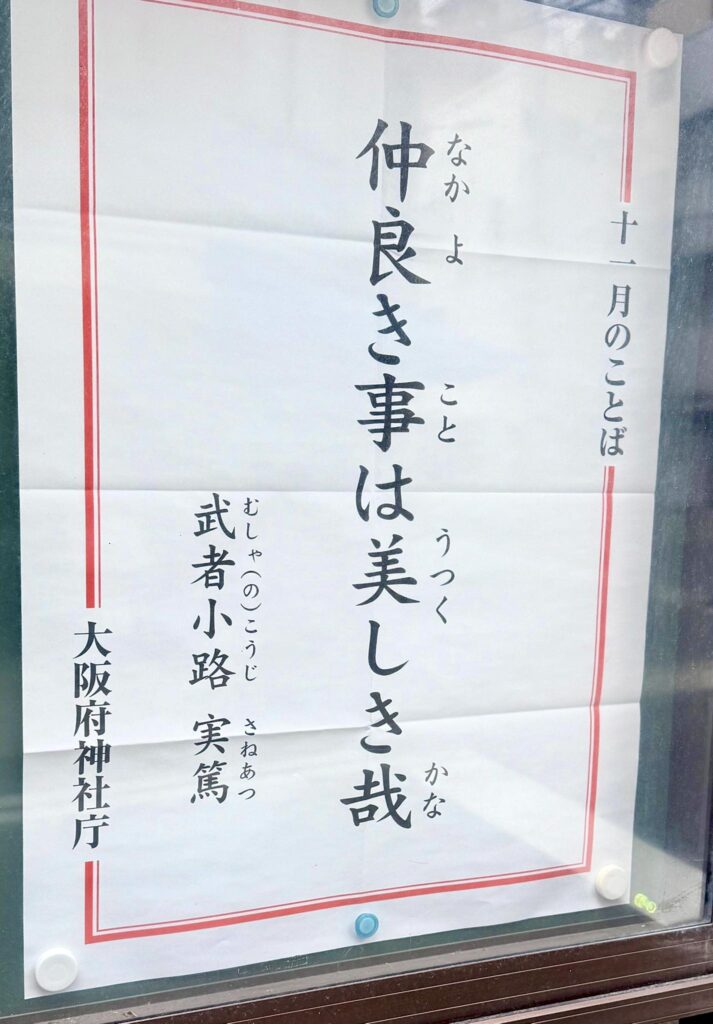 十一月のことば
仲良き事は美しき哉
なか よ こと うつく かな
武者小路 実篤
むしゃ(の)こうじ さねあつ
大阪府神社庁